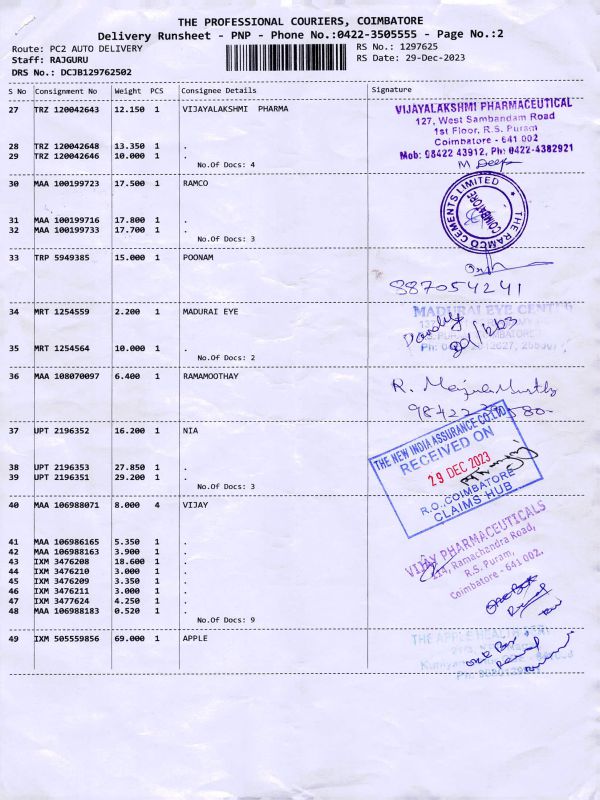 THE PROFESSIONAL COURIERS, COIMBATORE
Delivery Runsheet - PNP - Phone No.:0422-3505555 - Page No.:2
Route: PC2 AUTO DELIVERY RS No.: 1297625
Staff: RAJGURU RS Date: 29-Dec-2023
DRS No.: DCJB129762502
S No Consignment No Weight PCS Consignee Details Signature
27 TRZ 120042643 12.150 1 VIJAYALAKSHMI PHARMA
VIJAYALAKSHMI PHARMACEUTICAL
127, West Sambandam Road
1st Floor, R.S. Puram
Coimbatore - 641 002
Mob: 98422 43912, Ph: 0422-4382921
28 TRZ 120042648 13.350 1 .
29 TRZ 120042646 10.000 1 .
No.Of Docs: 4
M Deepa
30 MAA 100199723 17.500 1 RAMCO
THE RAMCO CEMENTS LIMITED
COIMBATORE
31 MAA 100199716 17.800 1 .
32 MAA 100199733 17.700 1 .
No.Of Docs: 3
33 TRP 5949385 15.000 1 POONAM
887054241
34 MRT 1254559 2.200 1 MADURAI EYE
MADURAI EYE CENTRE
35 MRT 1254564 10.000 1 .
No.Of Docs: 2
36 MAA 108070097 6.400 1 RAMAMOOTHAY
R.
37 UPT 2196352 16.200 1 NIA
THE NEW INDIA ASSURANCE CO.LTD
RECEIVED ON
29 DEC 2023
R.O., COIMBATORE
CLAIMS HUB
38 UPT 2196353 27.850 1 .
39 UPT 2196351 29.200 1 .
No.Of Docs: 3
40 MAA 106988071 8.000 4 VIJAY
VIJAY PHARMACEUTICALS
214, Ramachandra Road,
R.S. Puram,
Coimbatore - 641 002.
41 MAA 106986165 5.350 1 .
42 MAA 106988163 3.900 1 .
43 IXM 3476208 18.600 1 .
44 IXM 3476210 3.000 1 .
45 IXM 3476209 3.350 1 .
46 IXM 3476211 3.000 1 .
47 IXM 3477624 4.250 1 .
48 MAA 106988183 0.520 1 .
No.Of Docs: 9
49 IXM 505559856 69.000 1 APPLE
THE APPLE